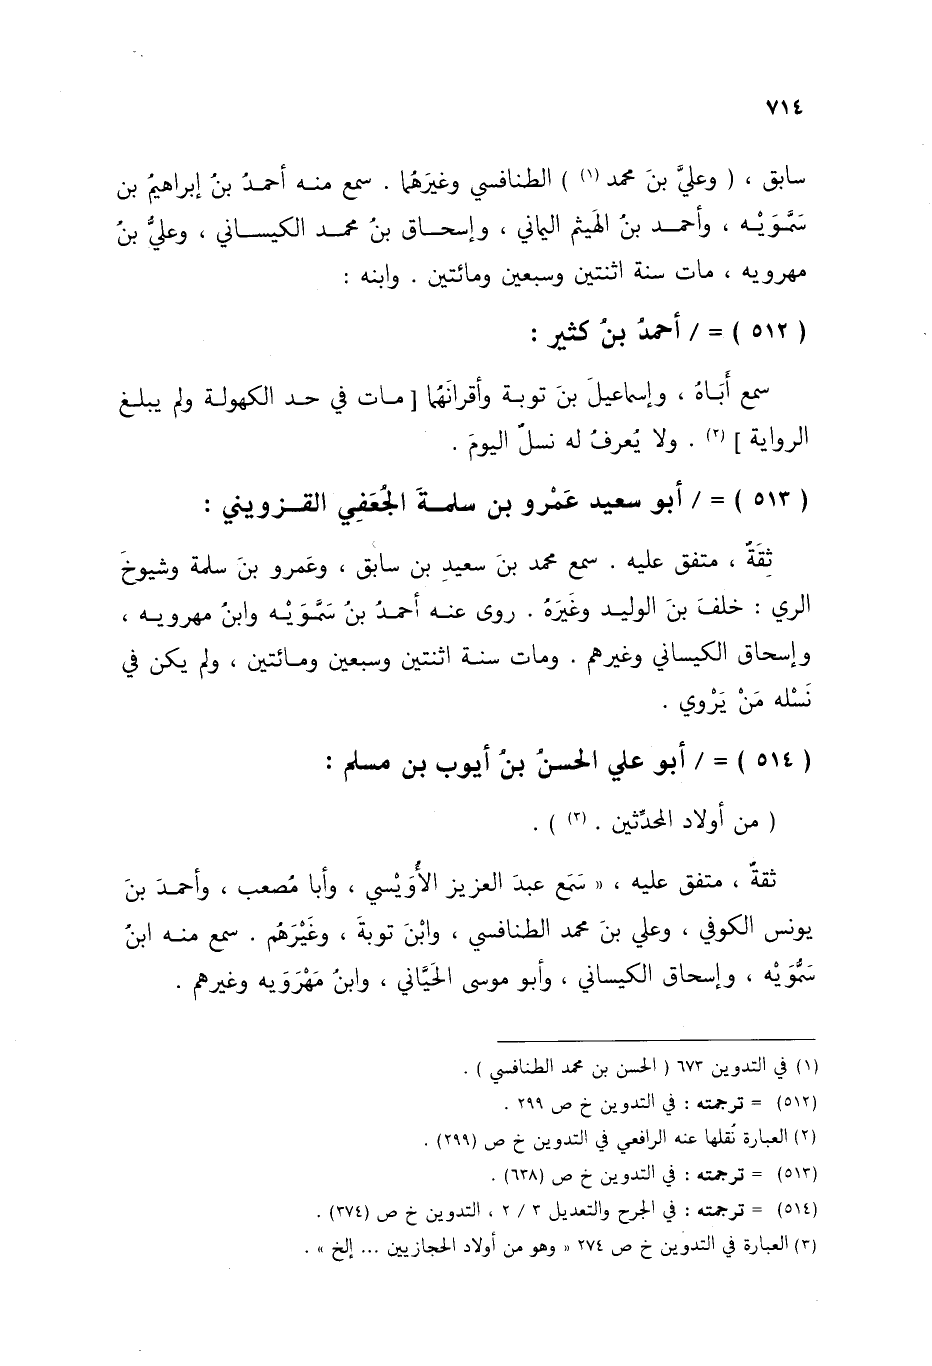 ٧١٤
سابق ، ( وعليَّ بنَ محمد (١) ) الطنافسي وغيرَهُما . سمع منه أحمدُ بنُ إبراهيمُ بن
سَمَّوَيْه ، وأحمد بنُ الهيثم الياني ، وإسحاق بنُ محمد الكيساني ، وعليُّ بنُ
مهرويه ، مات سنة اثنتين وسبعين ومائتين . وابنه :
( ٥١٢ ) = / أحمدُ بنُ كثير :
سمع أَبَاهُ ، وإسماعيلَ بنَ توبة وأقرانَهُما [ مات في حد الكهولة ولم يبلغ
الرواية ] (٢) . ولا يُعرفُ له نسلٌ اليومَ .
( ٥١٣ ) = / أبو سعيد عَمْرو بن سلمةَ الجُعَفِي القزويني :
ثِقَةٌ ، متفق عليه . سمع محمد بنَ سعيدِ بن سابق ، وعَمرو بنَ سلمة وشيوخَ
الري : خلفَ بنَ الوليد وغَيَرَهُ . روى عنه أحمدُ بنُ سَمَّوَيْه وابنُ مهرويه ،
وإسحاق الكيساني وغيرهم . ومات سنة اثنتين وسبعين ومائتين ، ولم يكن في
نَسْله مَنْ يَرْوي .
( ٥١٤ ) = / أبو علي الحسنُ بنُ أيوب بن مسلم :
( من أولاد المحدِّثين . (٣) ) .
ثقةٌ ، متفق عليه ، « سَمَع عبدَ العزيز الأُوَيْسي ، وأبا مُصعب ، وأحمدَ بنَ
يونس الكوفي ، وعلي بنَ محمد الطنافسي ، وابْنَ توبةَ ، وغَيْرَهُم . سمع منه ابنُ
سَمُّوَيْه ، وإسحاق الكيساني ، وأبو موسى الحَيَّاني ، وابنُ مَهْرَوَيه وغيرهم .
(١) في التدوين ٦٧٣ ( الحسن بن محمد الطنافسي ) .
(٥١٢) = ترجمته : في التدوين خ ص ٢٩٩ .
(٢) العبارة نُقلها عنه الرافعي في التدوين خ ص (٢٩٩) .
(٥١٣) = ترجمته : في التدوين خ ص (٦٣٨) .
(٥١٤) = ترجمته : في الجرح والتعديل ٣ / ٢ ، التدوين خ ص (٣٧٤) .
(٣) العبارة في التدوين خ ص ٢٧٤ « وهو من أولاد الحجازيين ... إلخ » .